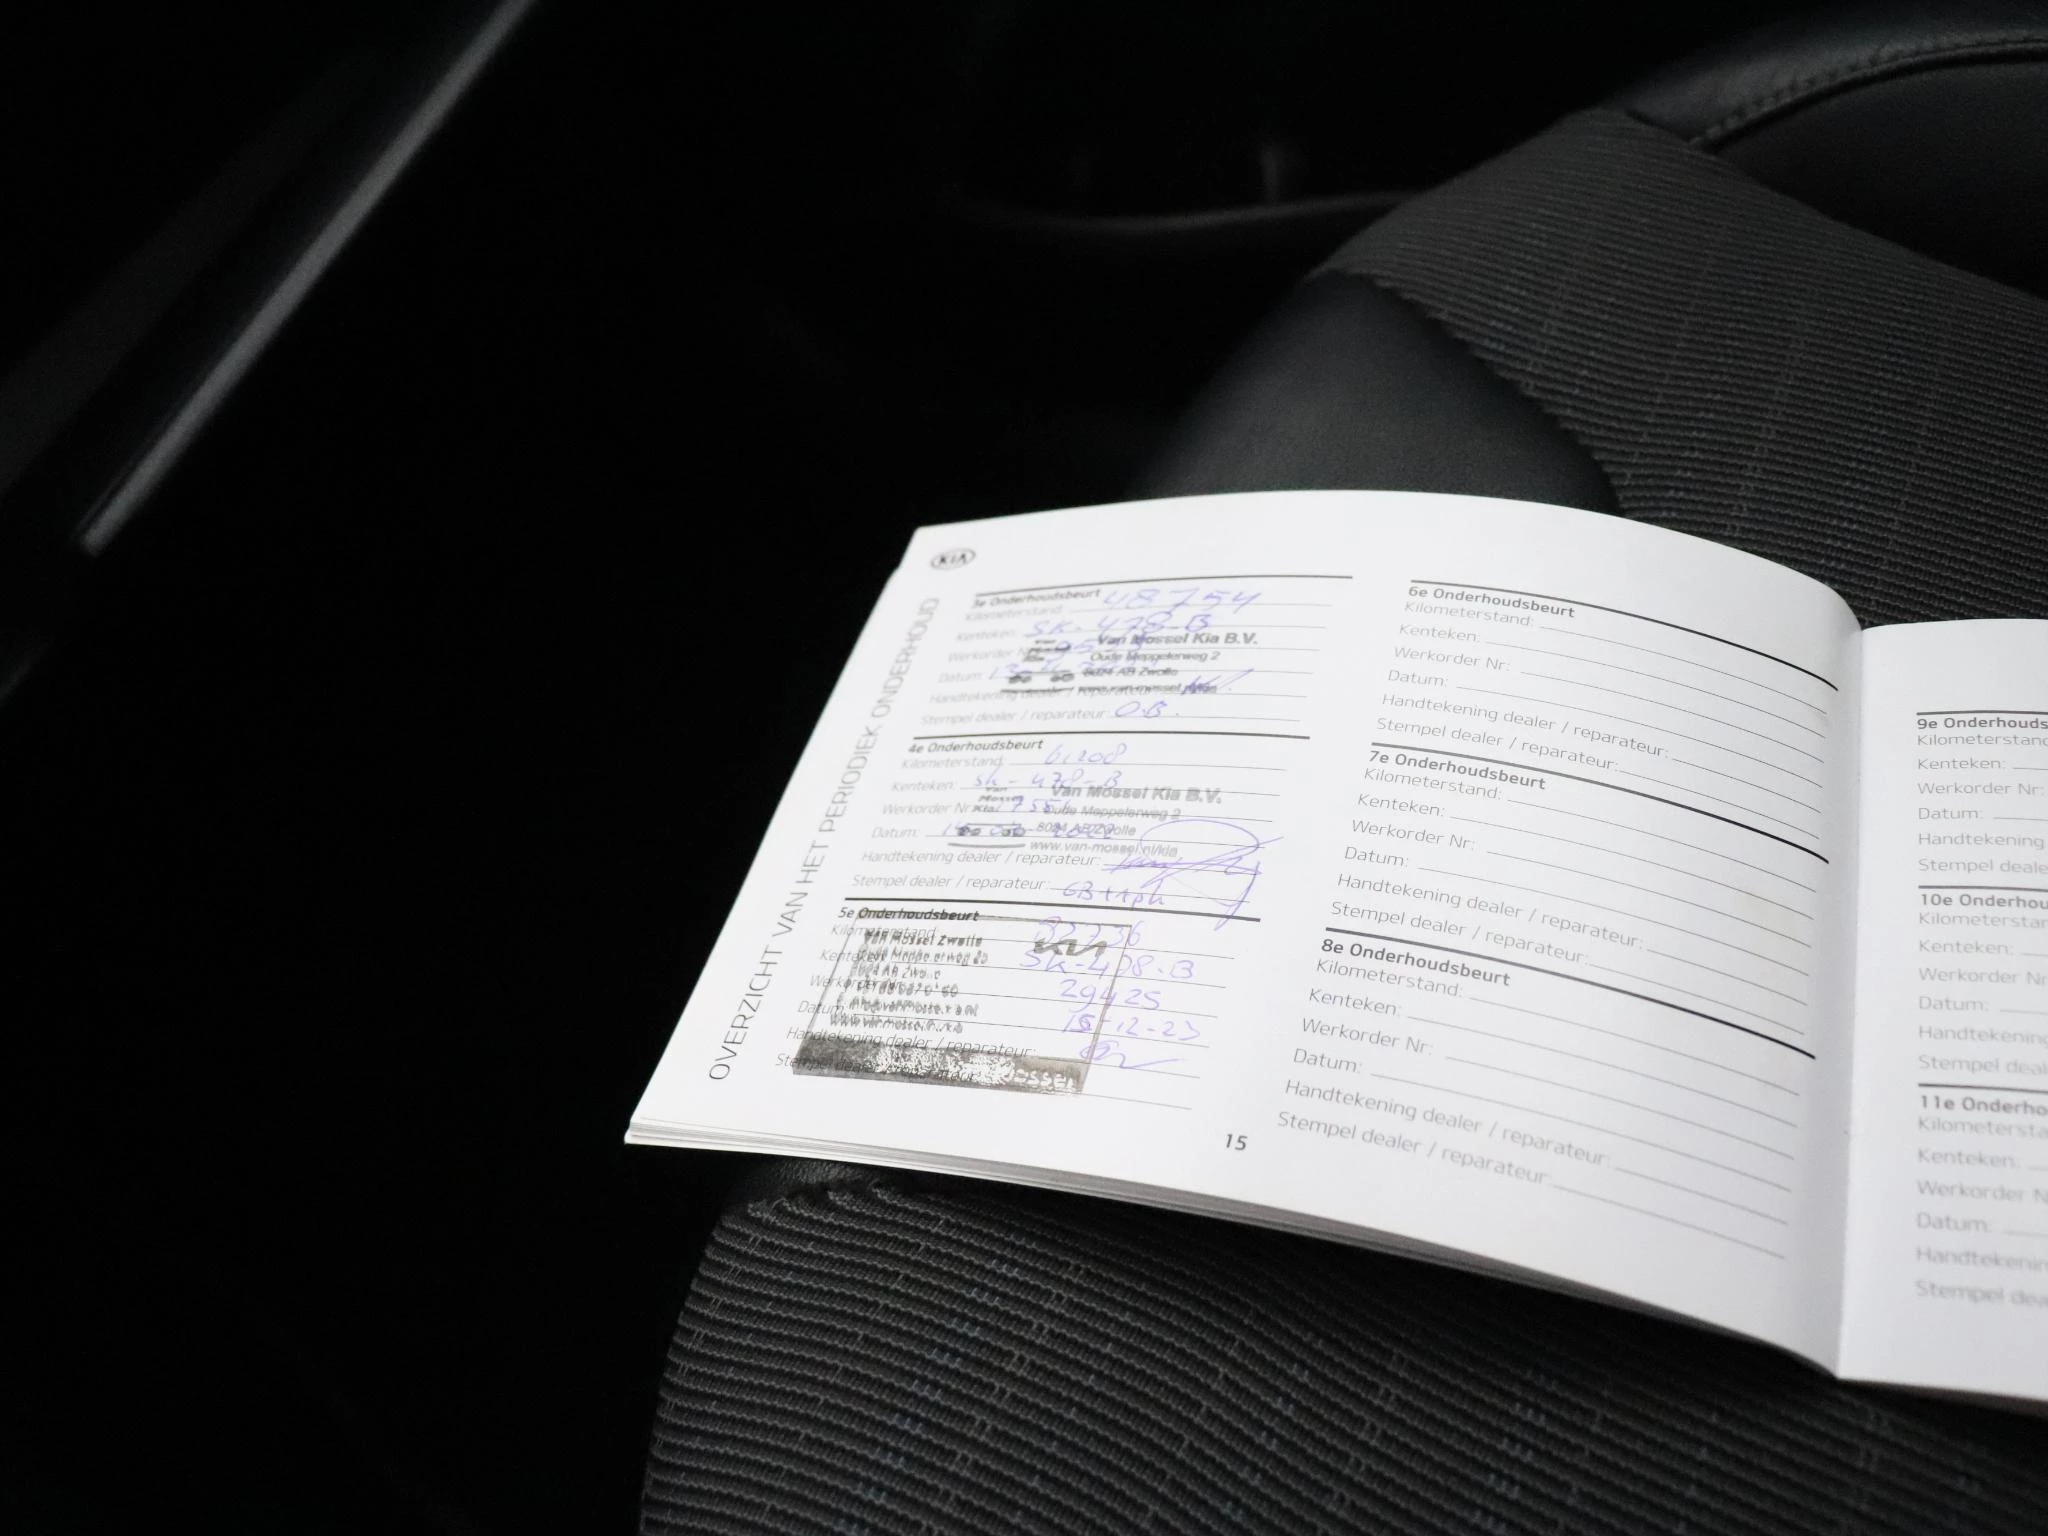 KIA
OVERZICHT VAN HET PERIODIEK ONDERHOUD
3e Onderhoudsbeurt
Kilometerstand: 48754
Kenteken: SK-478-B
Werkorder Nr:
Datum:
Handtekening dealer / reparateur:
Stempel dealer / reparateur: O.B.
Van Mossel Kia B.V.
Oude Meppelerweg 2
8024 AB Zwolle
4e Onderhoudsbeurt
Kilometerstand: 61208
Kenteken: SK-478-B
Werkorder Nr:
Datum:
Handtekening dealer / reparateur:
Stempel dealer / reparateur:
Van Mossel Kia B.V.
Oude Meppelerweg 2
8024 AB Zwolle
www.van-mossel.nl/kia
5e Onderhoudsbeurt
Kilometerstand:
Kenteken: SK-478-B
29425
Datum: 15-12-23
Handtekening dealer / reparateur:
Stempel dealer / reparateur:
Van Mossel Zwolle
KIA
15
6e Onderhoudsbeurt
Kilometerstand:
Kenteken:
Werkorder Nr:
Datum:
Handtekening dealer / reparateur:
Stempel dealer / reparateur:
7e Onderhoudsbeurt
Kilometerstand:
Kenteken:
Werkorder Nr:
Datum:
Handtekening dealer / reparateur:
Stempel dealer / reparateur:
8e Onderhoudsbeurt
Kilometerstand:
Kenteken:
Werkorder Nr:
Datum:
Handtekening dealer / reparateur:
Stempel dealer / reparateur:
9e Onderhouds
Kilometerstand
Kenteken:
Werkorder Nr:
Datum:
Handtekening
Stempel deale
10e Onderhou
Kilometerstar
Kenteken:
Werkorder Nr
Datum:
Handtekening
Stempel deal
11e Onderho
Kilometersta
Kenteken:
Werkorder N
Datum:
Handtekenin
Stempel dea